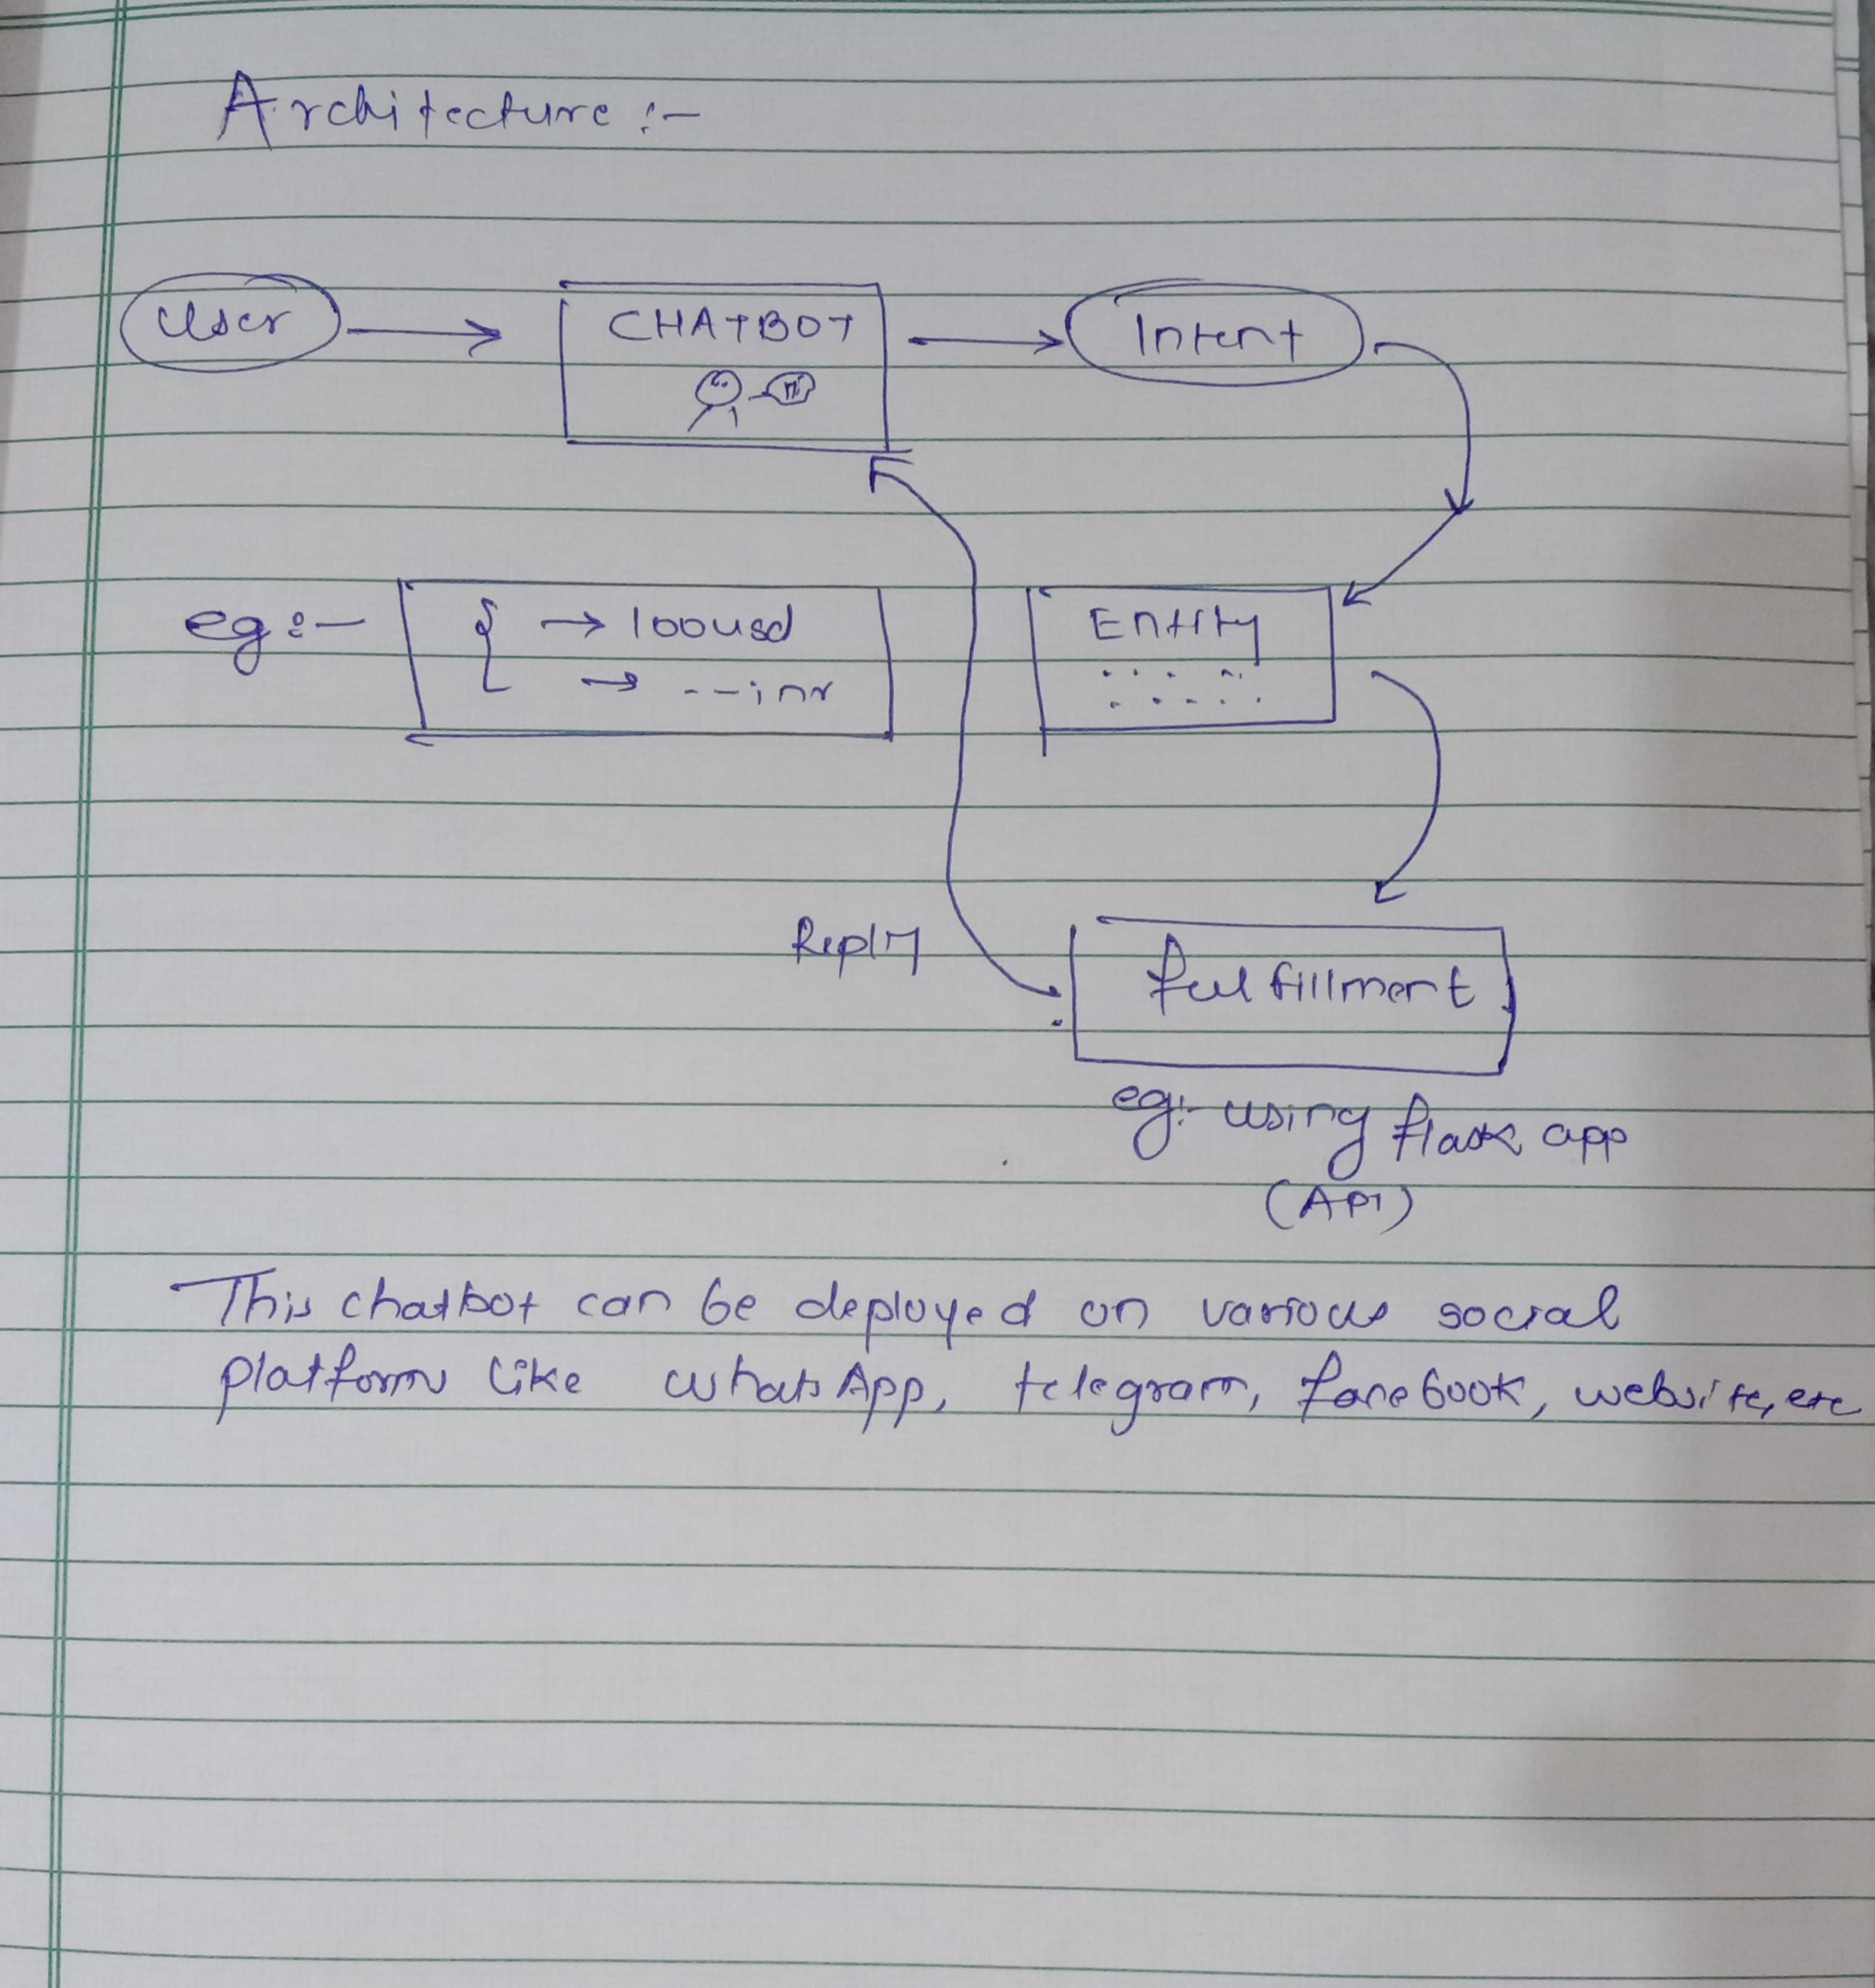 Architecture :-
User → CHATBOT → Intent
eg :- { → 100usd Entity
→ --inr
Reply fulfillment
eg:- using flask app
(API)
This chatbot can be deployed on various social
platforms like whatsApp, telegram, facebook, website, etc